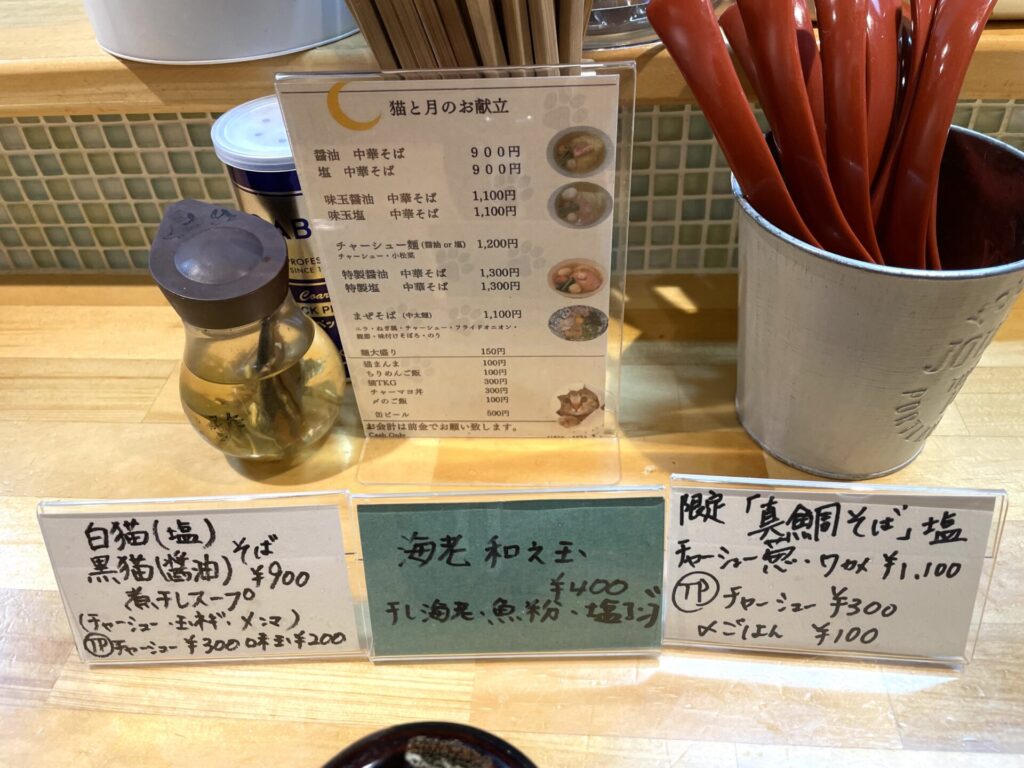 猫と月のお献立
醤油 中華そば 900円
塩 中華そば 900円
味玉醤油 中華そば 1,100円
味玉塩 中華そば 1,100円
チャーシュー麺(醤油 or 塩) 1,200円
チャーシュー・小松菜
特製醤油 中華そば 1,300円
特製塩 中華そば 1,300円
まぜそば(中太麺) 1,100円
ニラ・ねぎ・チャーシュー・フライドオニオン・
味付けそぼろ・のり
麺大盛り 150円
猫まんま 100円
ちりめんご飯 100円
猫TKG 300円
チャーマヨ丼 300円
〆のご飯 100円
缶ビール 500円
お会計は前金でお願い致します。
Cash Only
AB
PROFES
SINCE 1
Coar
CK P
白猫(塩)
黒猫(醤油) そば ¥900
煮干しスープ
(チャーシュー・玉ネギ・メンマ)
TP チャーシュー ¥300 味玉 ¥200
海老 和え玉
¥400
干し海老・魚粉・塩
限定「真鯛そば」塩
チャーシュー 葱・ワカメ ¥1,100
TP チャーシュー ¥300
〆ごはん ¥100